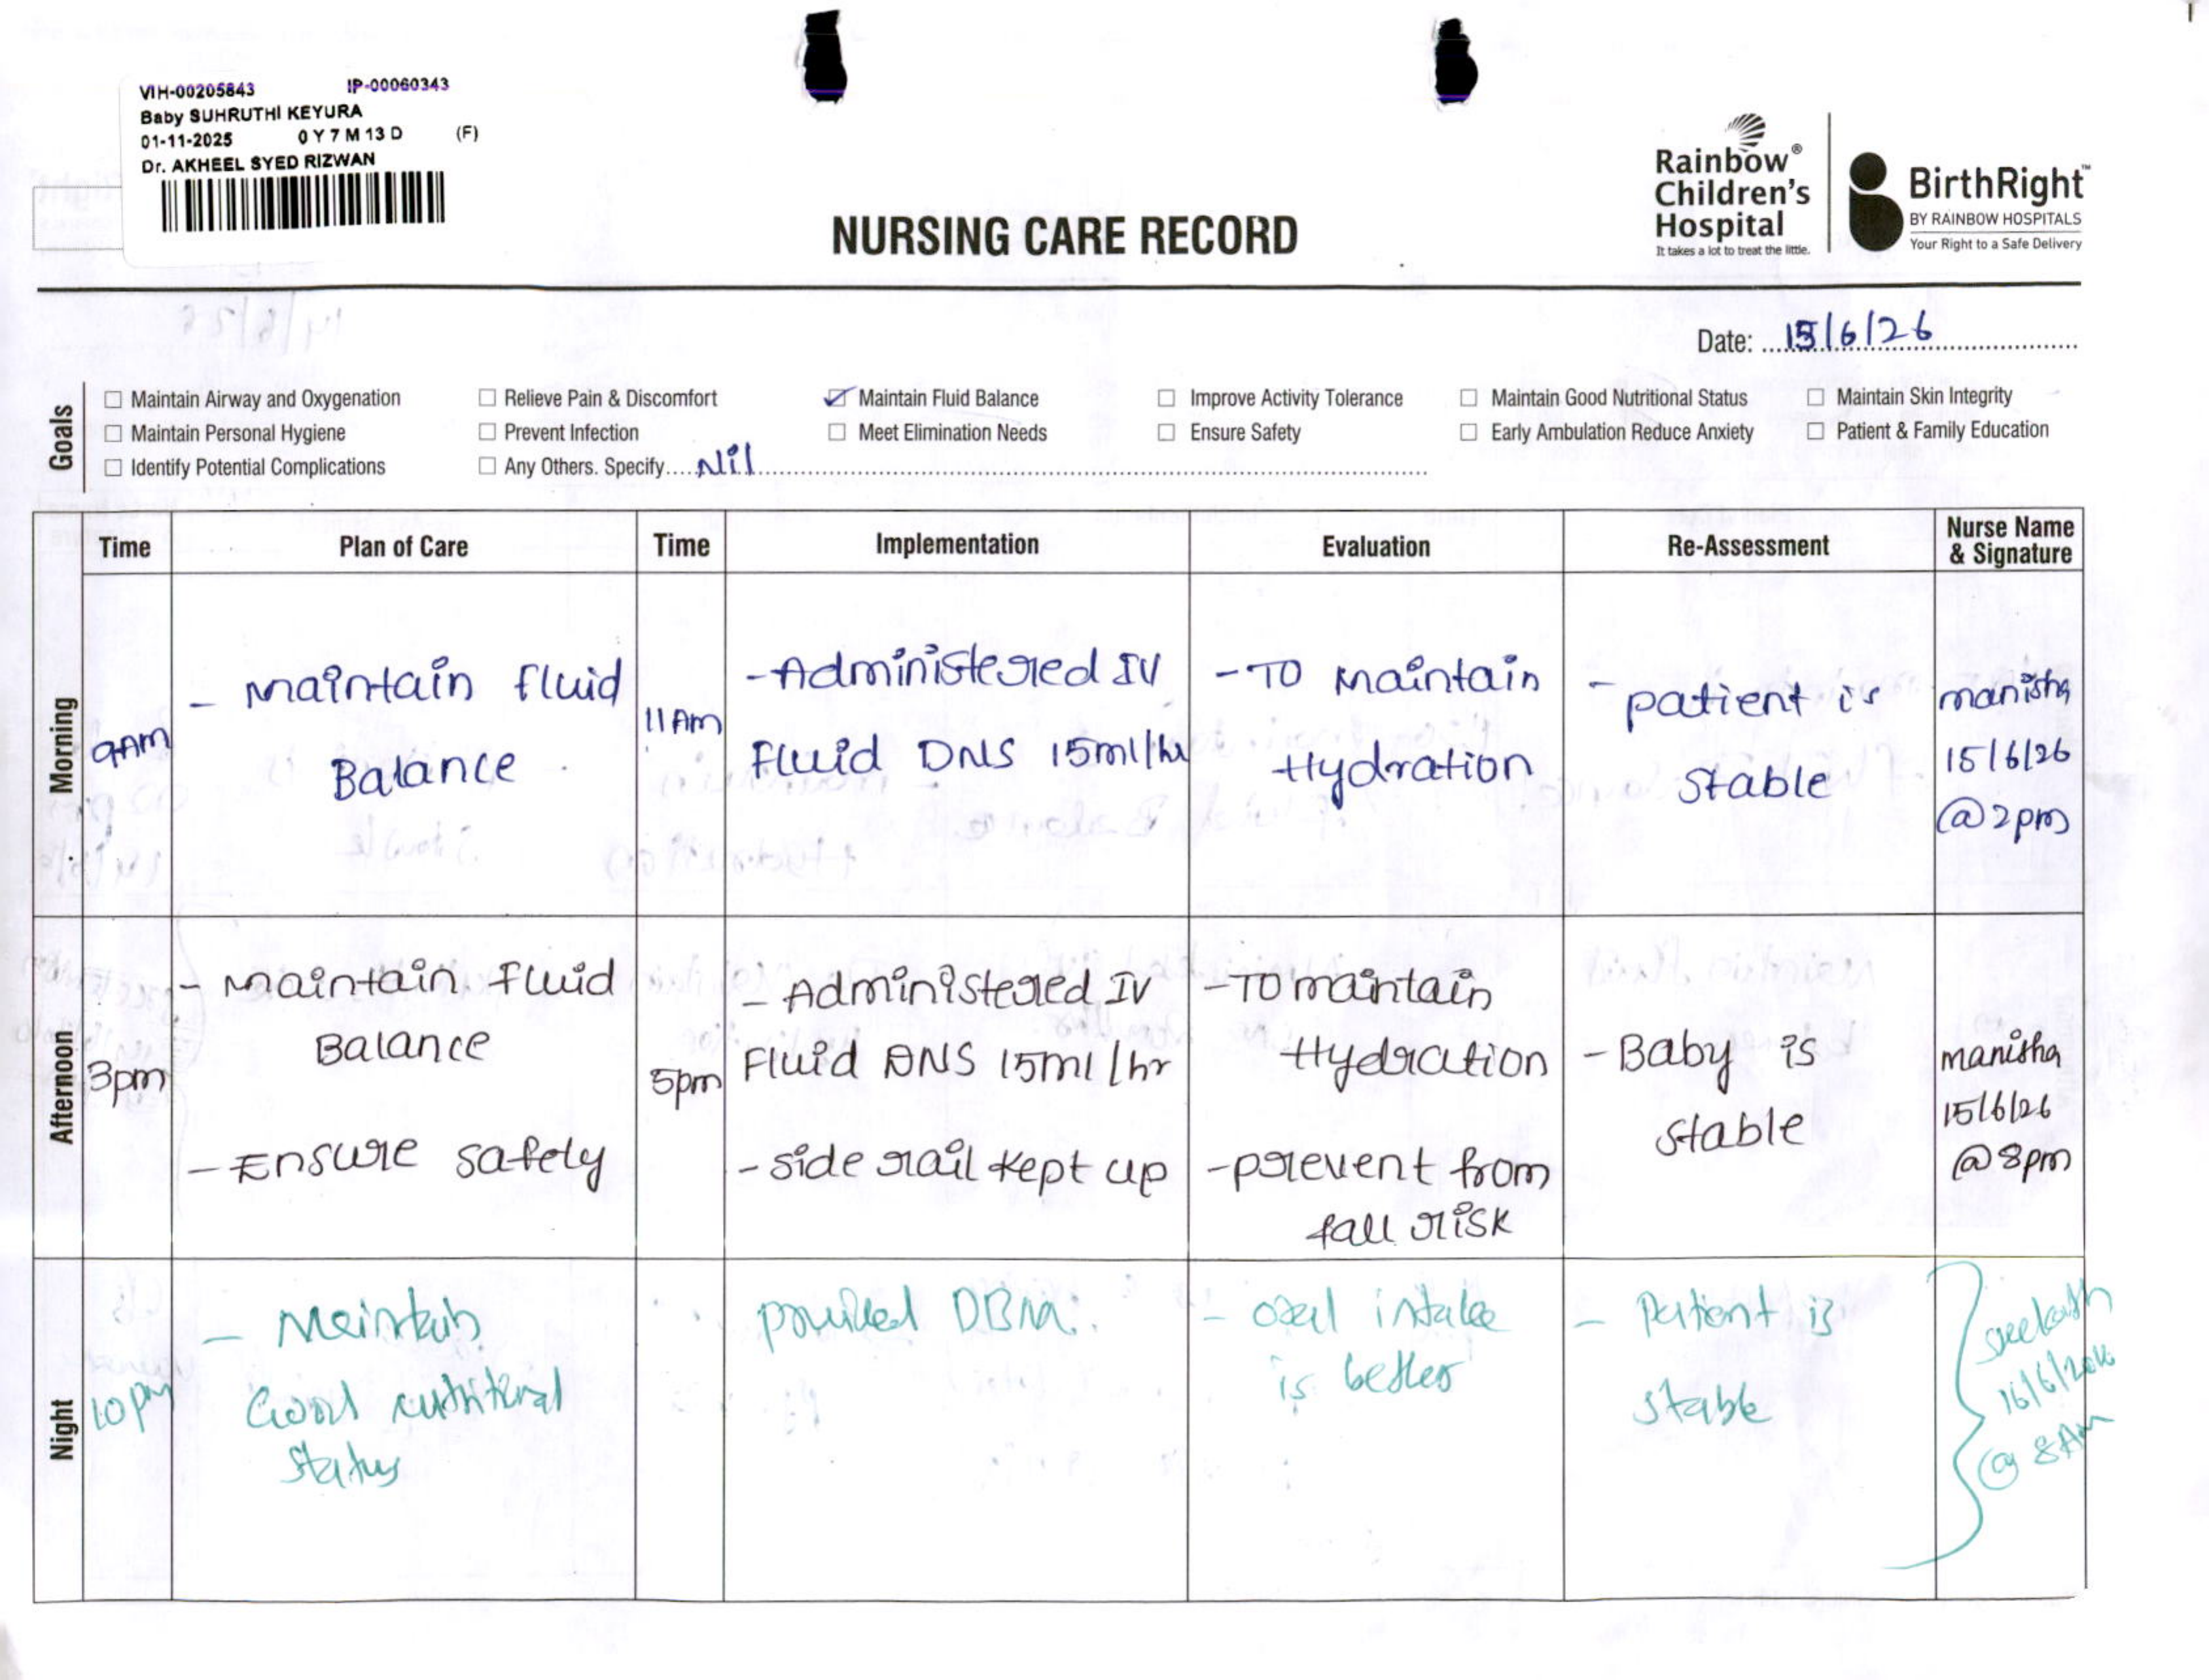 VIH-00205843 IP-00060343
Baby SUHRUTHI KEYURA
01-11-2025 0 Y 7 M 13 D (F)
Dr. AKHEEL SYED RIZWAN
NURSING CARE RECORD
Rainbow®
Children's
Hospital
It takes a lot to treat the little.
BirthRight™
BY RAINBOW HOSPITALS
Your Right to a Safe Delivery
Date: 15/6/26
Goals
☐ Maintain Airway and Oxygenation ☐ Relieve Pain & Discomfort ☑ Maintain Fluid Balance ☐ Improve Activity Tolerance ☐ Maintain Good Nutritional Status ☐ Maintain Skin Integrity
☐ Maintain Personal Hygiene ☐ Prevent Infection ☐ Meet Elimination Needs ☐ Ensure Safety ☐ Early Ambulation Reduce Anxiety ☐ Patient & Family Education
☐ Identify Potential Complications ☐ Any Others. Specify.... Nil
Time Plan of Care Time Implementation Evaluation Re-Assessment Nurse Name
& Signature
Morning
9AM
- Maintain fluid
Balance
11 Am
- Administered IV
Fluid DNS 15ml/hr
- To Maintain
Hydration
- patient is
stable
manisha
15/6/26
@ 2pm
Afternoon
3pm
- Maintain Fluid
Balance
- Ensure safety
5pm
- Administered IV
Fluid DNS 15ml/hr
- side rail kept up
- To maintain
Hydration
- prevent from
fall risk
- Baby is
stable
manisha
15/6/26
@ 8pm
Night
10 pm
- Meintain
Good nutritional
status
provided DBM.
- oral intake
is better
- Patient is
stable
16/6/2026
@ 8Am